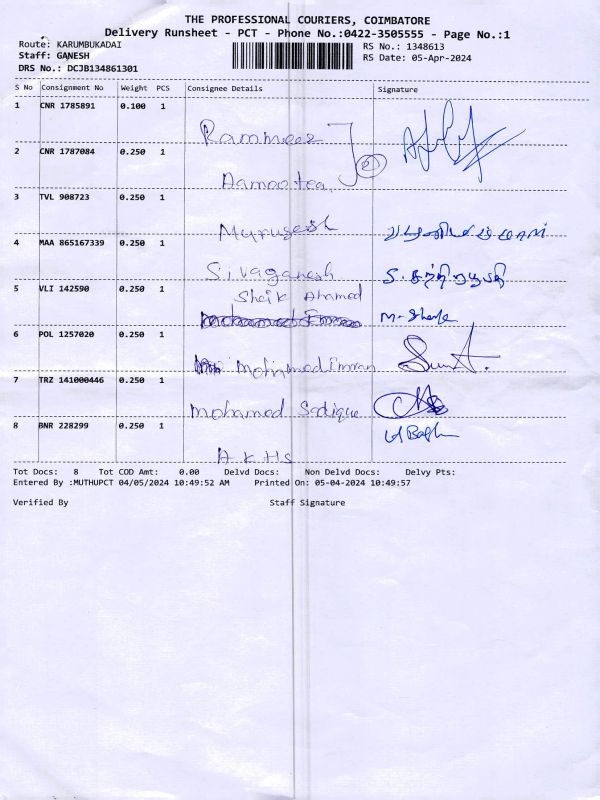 THE PROFESSIONAL COURIERS, COIMBATORE
Delivery Runsheet - PCT - Phone No.:0422-3505555 - Page No.:1
Route: KARUMBUKADAI
RS No.: 1348613
Staff: GANESH
RS Date: 05-Apr-2024
DRS No.: DCJB134861301
S No Consignment No Weight PCS Consignee Details Signature
1 CNR 1785891 0.100 1
2 CNR 1787084 0.250 1
3 TVL 908723 0.250 1
Murugesh
4 MAA 865167339 0.250 1
Sivaganesh
5 VLI 142590 0.250 1
Sheik Ahamed
6 POL 1257020 0.250 1
7 TRZ 141000446 0.250 1
Mohamed Sadique
8 BNR 228299 0.250 1
A.K.HS
Tot Docs: 8 Tot COD Amt: 0.00 Delvd Docs: Non Delvd Docs: Delvy Pts:
Entered By :MUTHUPCT 04/05/2024 10:49:52 AM Printed On: 05-04-2024 10:49:57
Verified By Staff Signature